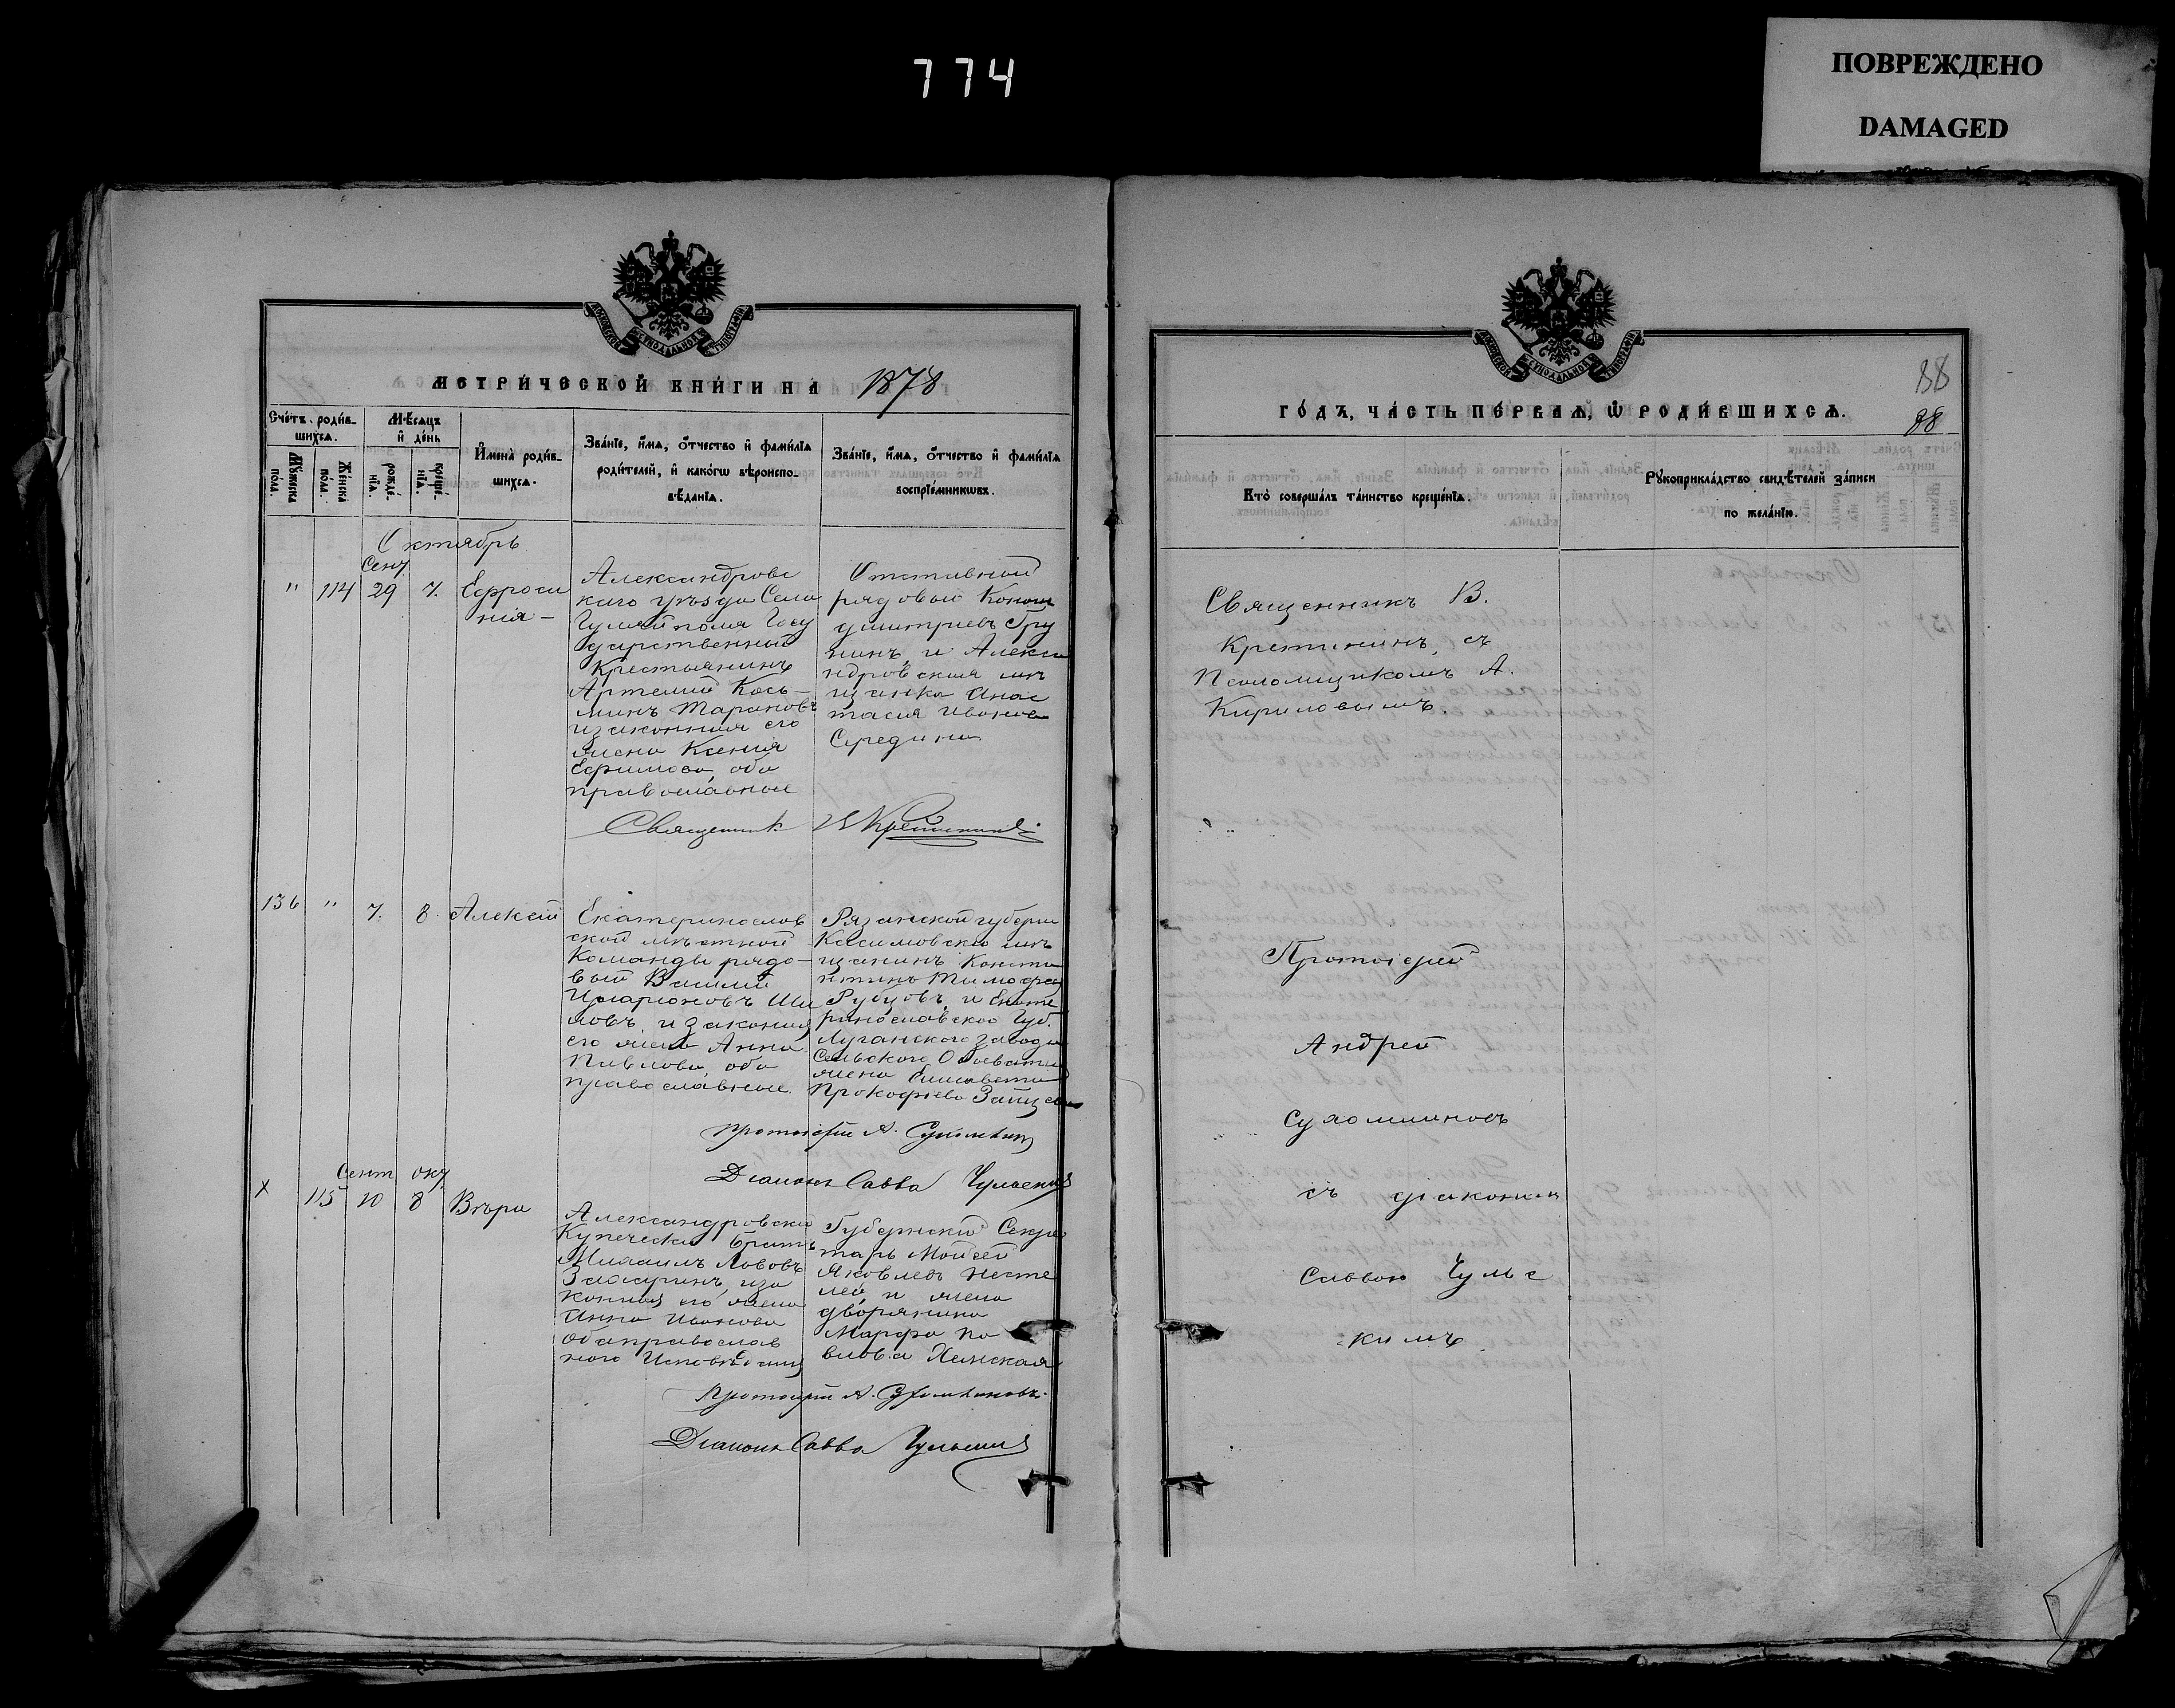 774
ПОВРЕЖДЕНО
DAMAGED
МОСКОВСКОЙ СУНОДАЛЬНОЙ ТИПОГРАФІИ
МЕТРИ́ЧЕСКОЙ КНИ́ГИ НА 1878
Сче́тъ роди́в-
шихсѧ.
Мѹ́жеска по́ла.
Же́нска по́ла.
Мѣ́сѧцъ
и҆ де́нь
рожде́-
нїѧ.
креще́-
нїѧ.
И҆мена̀ роди́в-
шихсѧ.
Зва́нїе, и҆́мѧ, ѻ҆́тчество и҆ фами́лїѧ
роди́телей, и҆ како́гѡ вѣроиспо-
вѣ́данїѧ.
Зва́нїе, и҆́мѧ, ѻ҆́тчество и҆ фами́лїѧ
воспрїе́мникѡвъ.
Октябрь
Сент
" 114 29 7. Ефроси
нія –
Александровс
каго уѣзда Села
Гуляйполя Госу
дарственный
Крестьянинъ
Артемій Кось-
минъ Тарановъ
и законная его
жена Ксенія
Ефимова, оба
православные
Отставной
рядовый Конон
Димитріевъ Гру
нинъ, и Алекса
ндровская мѣ
щанка Анас
тасія Иванова
Середина
Священник В Кретининъ
136 " 7. 8. Алексій
Екатеринослав
ской мѣстной
Команды рядо-
вый Василій
Иларіоновъ Ши
ловъ, и законная
его жена Анна
Павлова, оба
православные.
Рязанской губерніи
Касимовскій мѣ
щанинъ Конста
нтинъ Тимофеев
Рубцовъ, и Екате
ринославской Губ.
Луганского завода
Сельского Обывателя
жена Елисавета
Прокофіева Зайцева
протоіерей А. Сухомлинов
Діаконъ Савва Чульскій
Сент окт
х 115 10 8 Вѣра
Александровскій
Купеческій братъ
Михаилъ Львовъ
и за
конная его жена
Анна Иванова
оба православ
ного Исповѣданія
Губернскій Секре
тарь Моисей
Яковлевъ Несте
лей, и жена
дворянина
Марфа Па
влова Хемская
Протоіерей А. Сухомлиновъ.
Діаконъ Савва Чульскій
МОСКОВСКОЙ СУНОДАЛЬНОЙ ТИПОГРАФІИ
88
88
ГО́ДЪ, ЧА́СТЬ ПЕ́РВАѦ, Ѽ РОДИ́ВШИХСѦ.
Кто̀ соверша́лъ та́инство креще́нїѧ.
Рѹкоприкла́дство свидѣ́телей за́писи
по жела́нїю.
Священникъ В.
Кретининъ, съ
Псаломщикомъ А.
Кириловымъ.
Протоіерей
Андрей
Сухомлиновъ
съ діакономъ
Саввою Чульс
кимъ